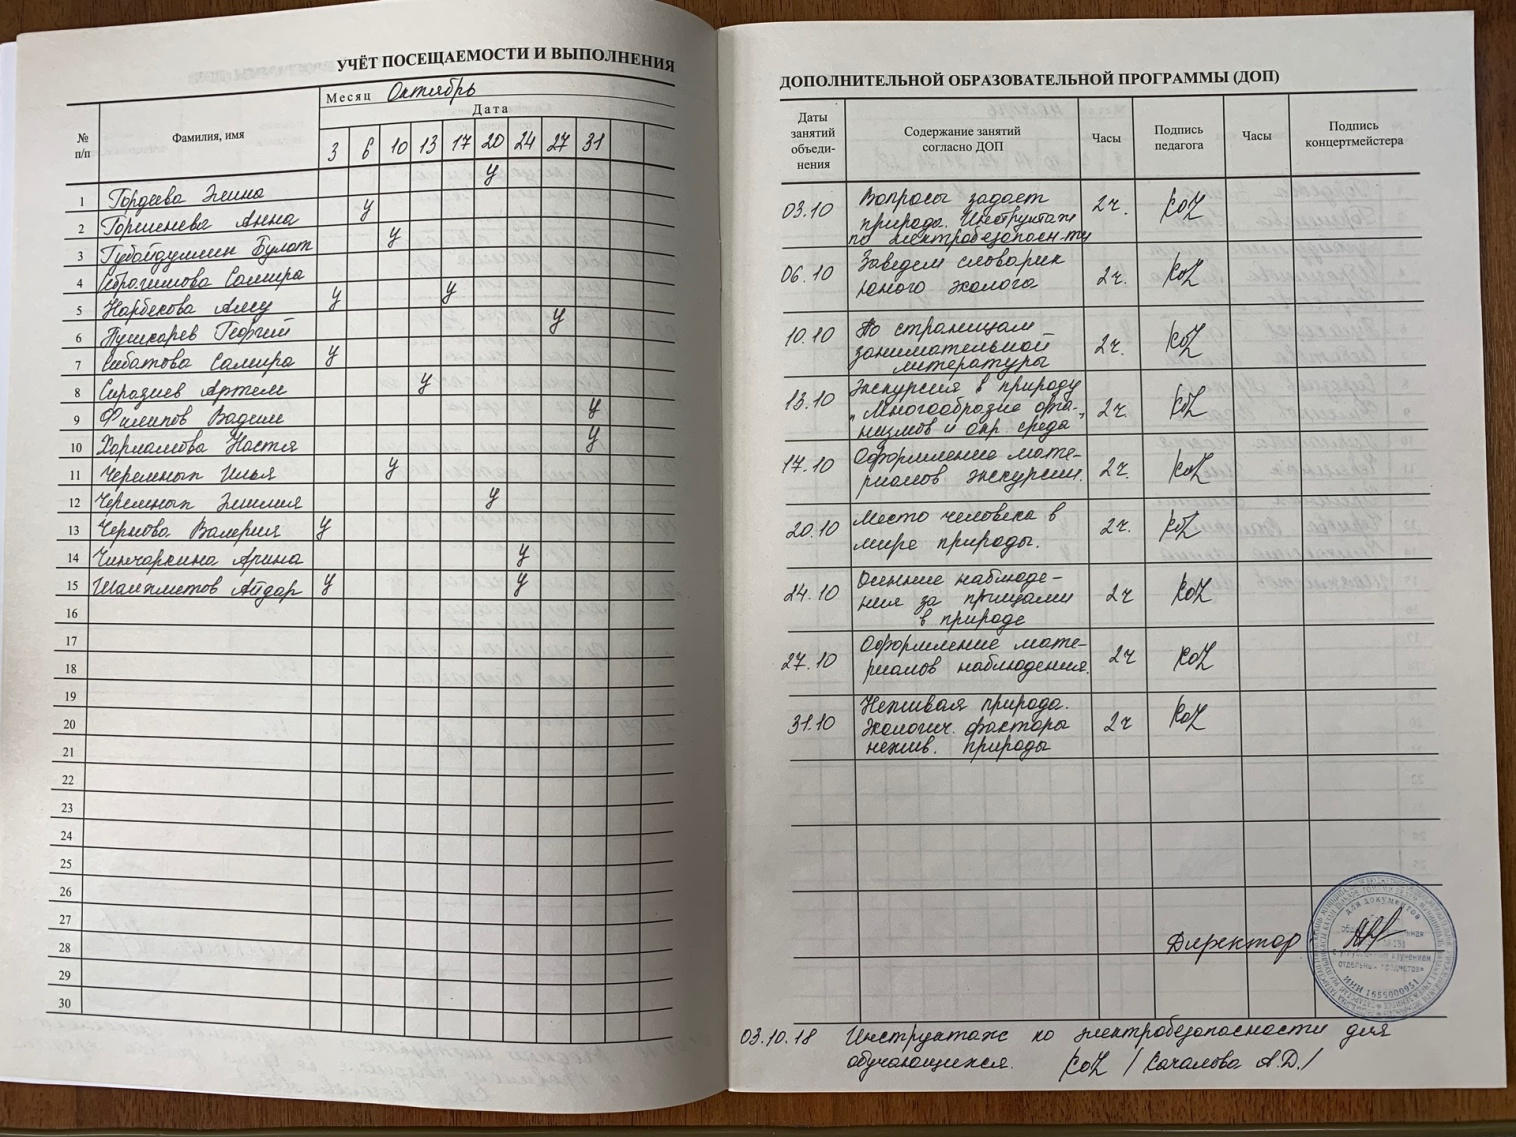 УЧЁТ ПОСЕЩАЕМОСТИ И ВЫПОЛНЕНИЯ
№ п/п
Фамилия, имя
Месяц Октябрь
Дата
3 6 10 13 17 20 24 27 31
1 Гордеева Элина у
2 Горшенева Анна у
3 Губайдуллин Булат у
4 Ибрагимова Самира
5 Нарбекова Алсу у у
6 Пушкарев Георгий у
7 Сибатова Самира у
8 Сиразиев Артем у
9 Филипов Вадим у
10 Харламова Настя у
11 Черемных Илья у
12 Черемных Эмилия у
13 Чернова Валерия у
14 Чинчаркина Арина у
15 Шаиахметов Айдар у у
16
17
18
19
20
21
22
23
24
25
26
27
28
29
30
ДОПОЛНИТЕЛЬНОЙ ОБРАЗОВАТЕЛЬНОЙ ПРОГРАММЫ (ДОП)
Даты
занятий
объеди-
нения
Содержание занятий
согласно ДОП
Часы
Подпись
педагога
Часы
Подпись
концертмейстера
03.10 Вопросы задает 2ч.
природа. Инструктаж
по электробезопасн-ти
06.10 Заведем словарик 2ч.
юного эколога
10.10 По страницам 2ч.
занимательной
литературы
13.10 Экскурсия в природу 2ч.
"Многообразие орга-
низмов и окр. среда"
17.10 Оформление мате- 2ч.
риалов экскурсии.
20.10 Место человека в 2ч.
мире природы.
24.10 Осенние наблюде- 2ч
ния за птицами
в природе
27.10 Оформление мате- 2ч
риалов наблюдения.
31.10 Неживая природа. 2ч
Экологич. факторы
нежив. природы
Директор
для документов
отдельных предметов»
ИНН 1655000951
03.10.18 Инструктаж по электробезопасности для
обучающихся. /Качалова А.Д./